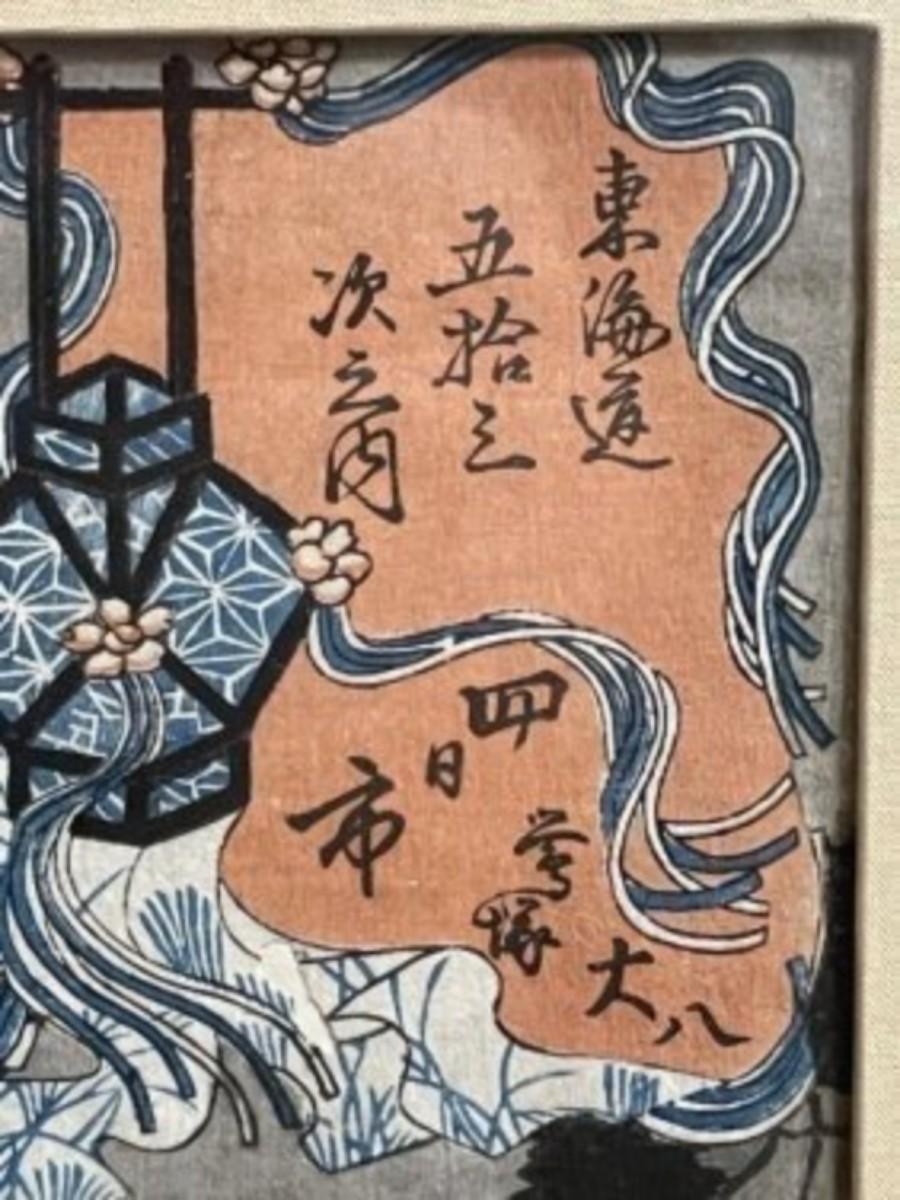 東海道
五拾三
次之内
四日市
鶯塚大八